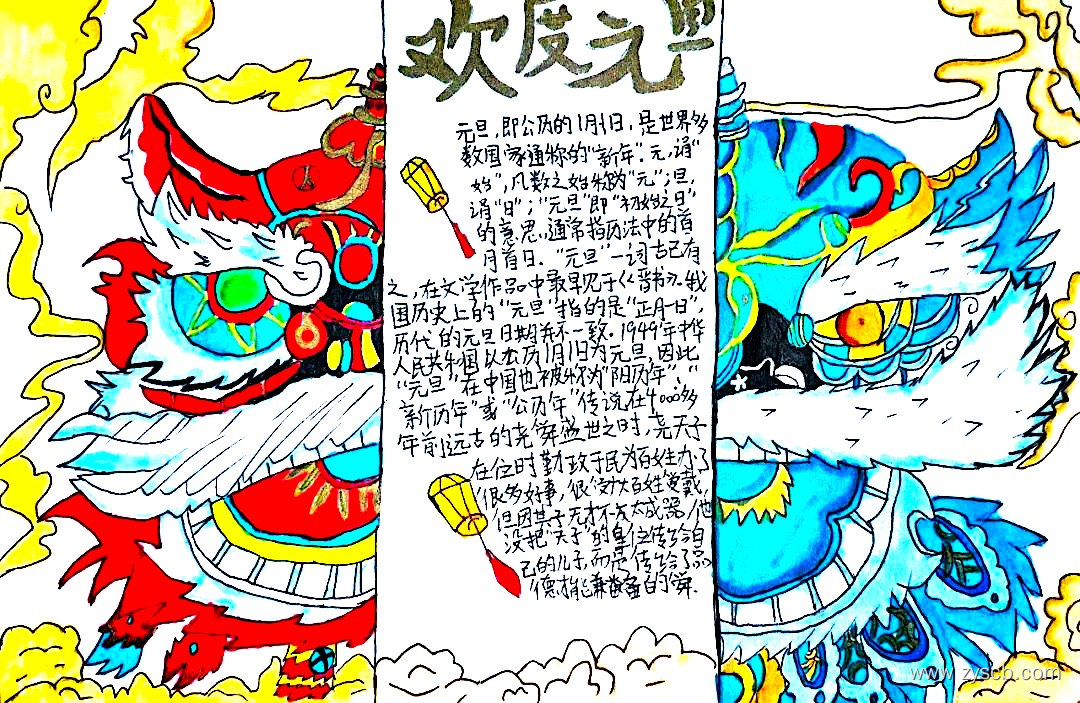 欢度元旦
元旦,即公历的1月1日,是世界多
数国家通称的“新年”.元,谓
“始”,凡数之始称为“元”;旦,
谓“日”;“元旦”即“初始之日”
的意思.通常指历法中的首
月首日.“元旦”一词古已有
之,在文学作品中最早见于《晋书》.我
国历史上的“元旦”指的是“正月一日”,
历代的元旦日期并不一致.1949年中华
人民共和国以公历1月1日为元旦,因此
“元旦”在中国也被称为“阳历年”、“
新历年”或“公历年”传说在4000多
年前远古的尧舜盛世之时,尧天子
在位时勤政于民为百姓办了
很多好事,很受广大百姓爱戴,
但因其子无才不太成器,他
没把“天子”的皇位传给自
己的儿子,而是传给了品
德才能兼备的舜.
www.zyscb.com